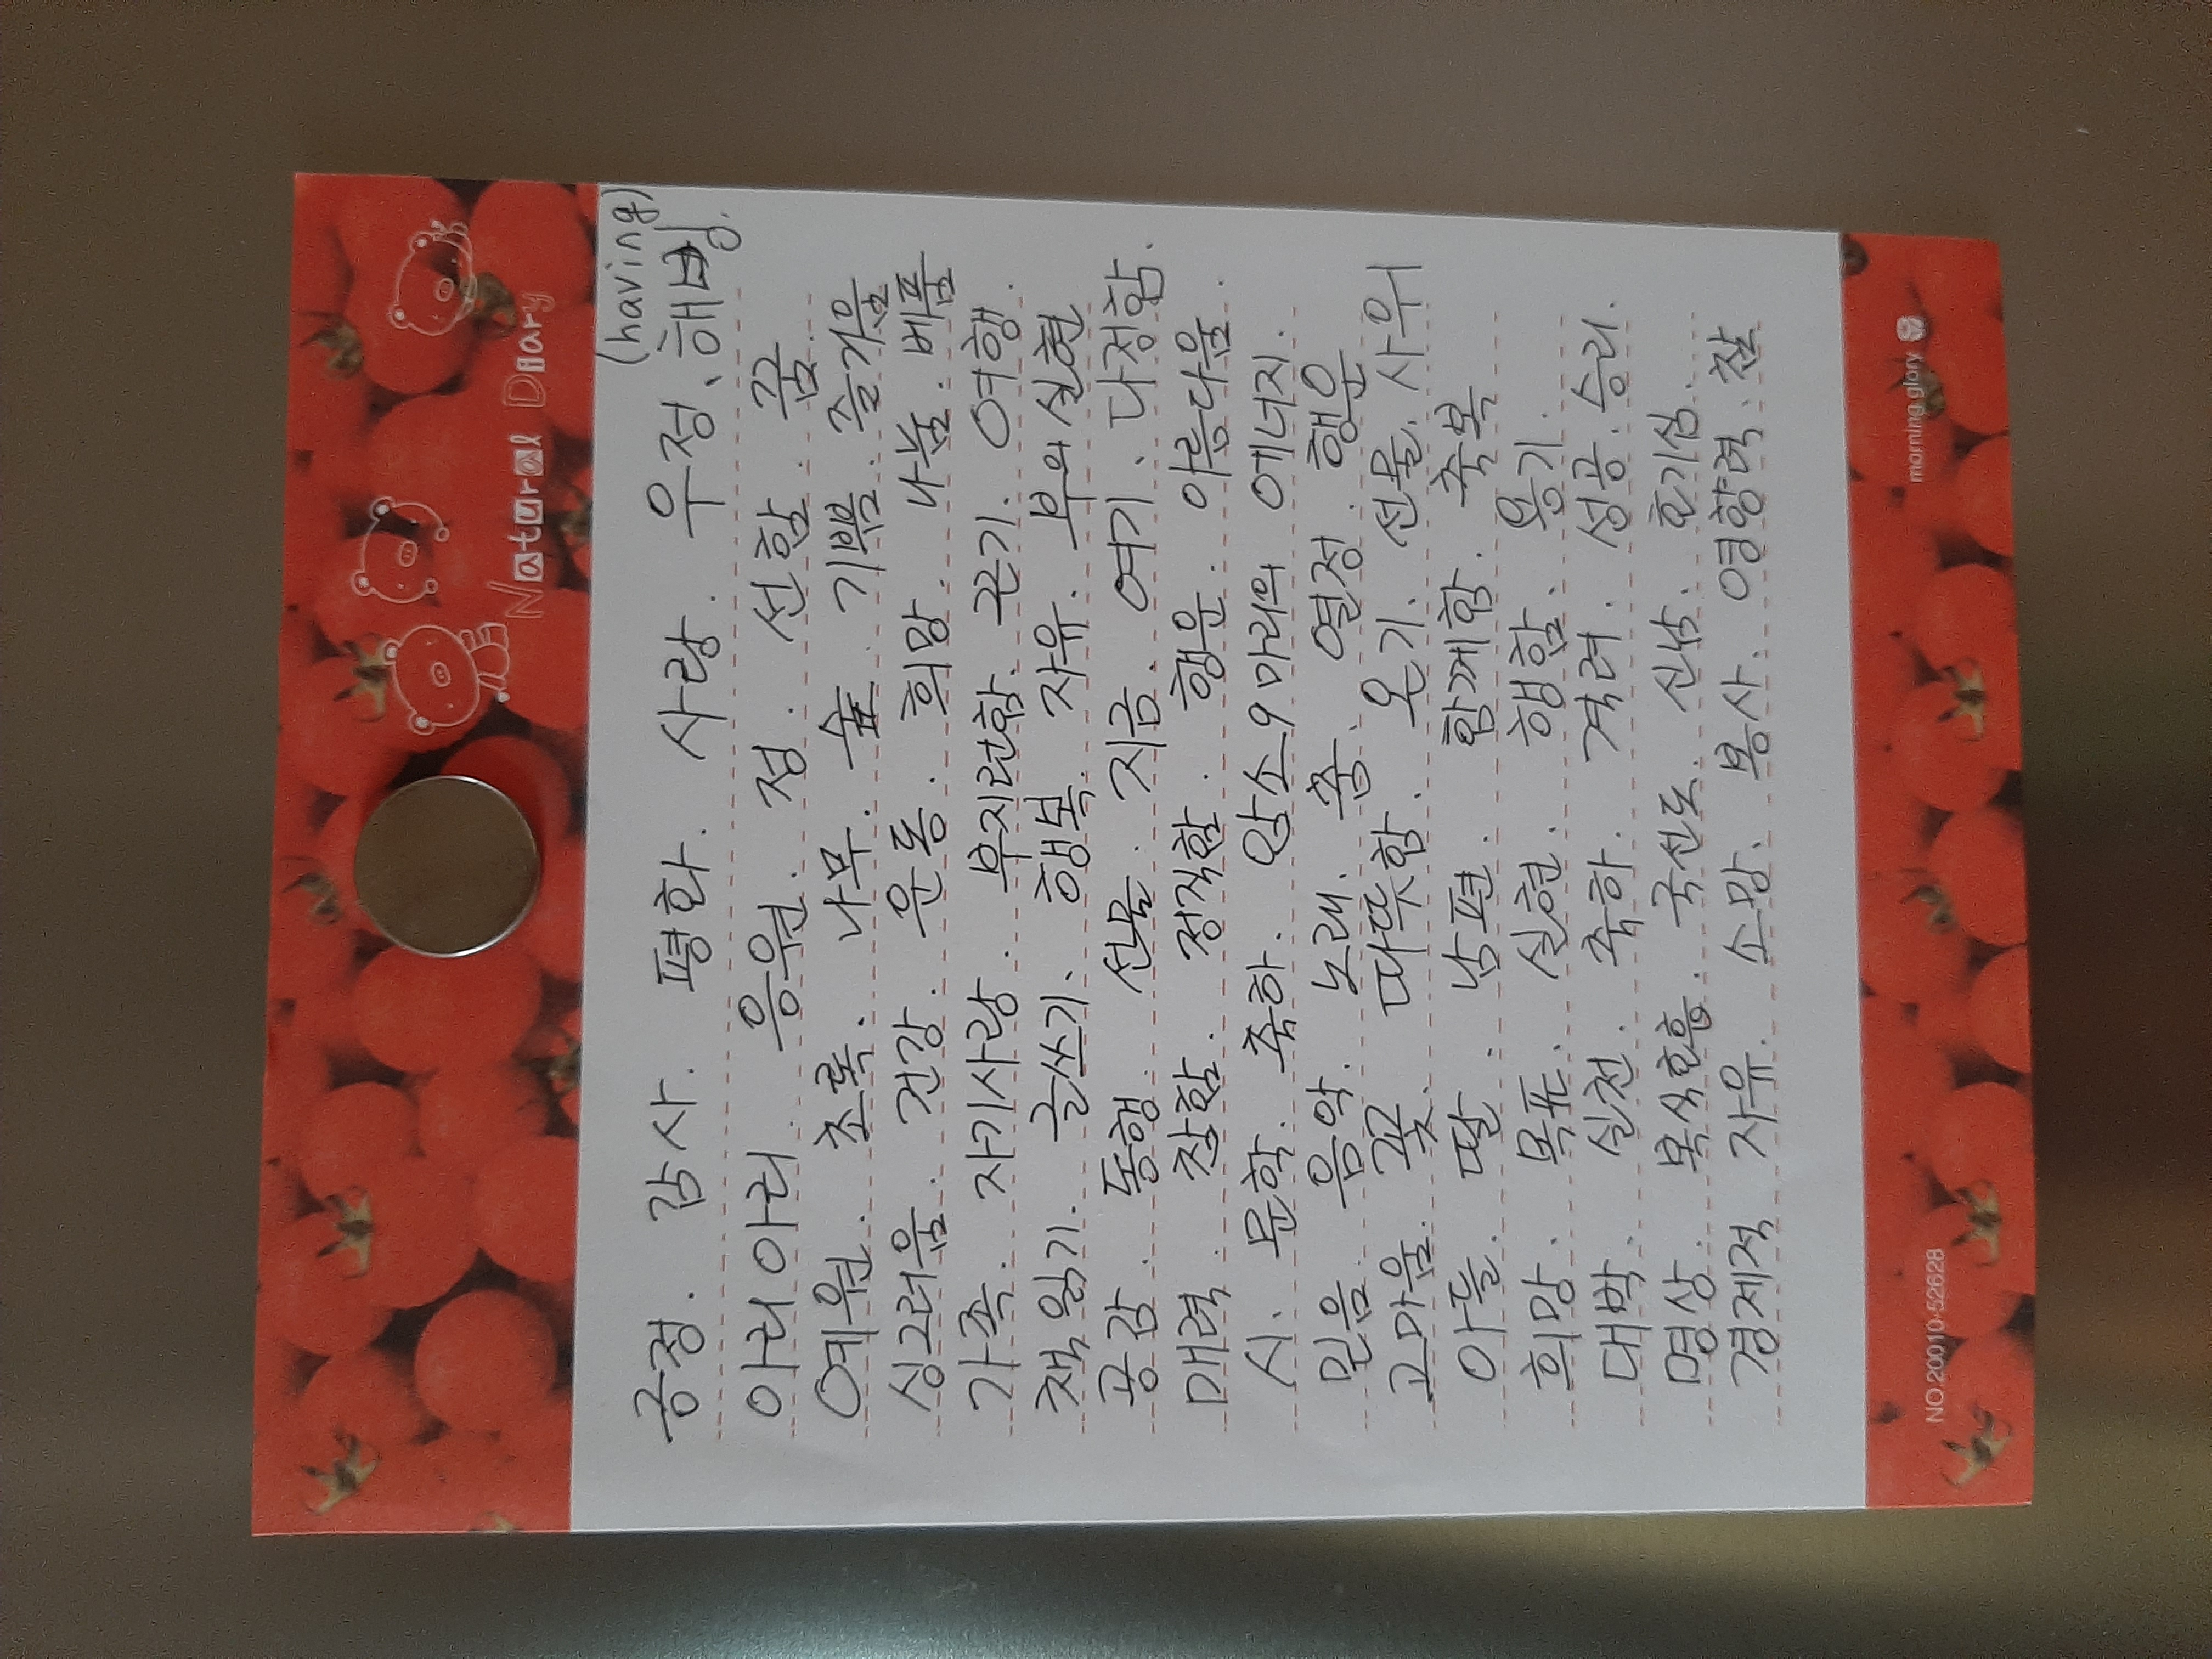 Natural Diary
(having)
긍정. 감사. 평화. 사랑. 우정, 해빙.
아리아리. 응원. 정. 선함. 꿈.
예원. 초록. 나무. 숲. 기쁨. 즐거움
싱그러움. 건강. 운동. 희망. 나눔. 베품
가족. 자기사랑. 부지런함. 끈기. 여행.
책읽기. 글쓰기. 행복. 자유. 부의 실현
공감. 동행. 선물. 지금. 여기. 다정함.
매력. 참함. 정직함. 행운. 아름다움.
시. 문학. 축하. 암소 9마리의 에너지.
믿음. 음악. 노래. 춤. 열정. 행운
고마움. 꽃. 따뜻함. 온기. 선물. 사위
아들. 딸. 남편. 함께함. 축복
희망. 목표. 실현. 행함. 용기.
대박. 실천. 축하. 격려. 성공. 승리.
명상. 복식호흡. 국선도. 신남. 호기심.
경제적 자유. 소망. 봉사. 영향력. 찰
NO.20010-52628
morning glory